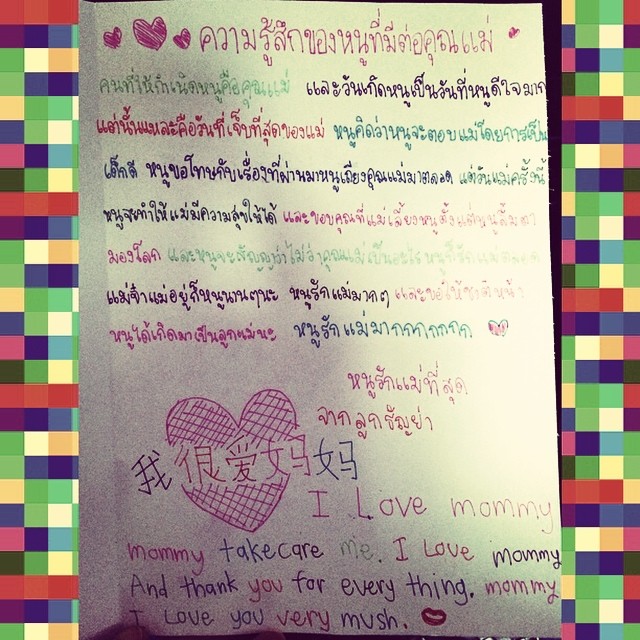 ความรู้สึกของหนูที่มีต่อคุณแม่
คนที่ให้กำเนิดหนูคือคุณแม่ และวันเกิดหนูเป็นวันที่หนูดีใจมาก
แต่นั้นแหละคือวันที่เจ็บที่สุดของแม่ หนูคิดว่าหนูจะตอบแม่โดยการเป็น
เด็กดี หนูขอโทษกับเรื่องที่ผ่านมาหนูเถียงคุณแม่มาตลอด แต่วันแม่ครั้งนี้
หนูจะทำให้แม่มีความสุขให้ได้ และขอบคุณที่แม่เลี้ยงหนูตั้งแต่หนูลืมตา
มองโลก และหนูจะสัญญาว่าไม่ว่าคุณแม่เป็นอะไร หนูก็รักแม่ตลอด
แม่จ๋าแม่อยู่กับหนูนานๆนะ หนูรักแม่มากๆ และขอให้ชาติหน้า
หนูได้เกิดมาเป็นลูกแม่นะ หนูรักแม่มากกกกกกก
หนูรักแม่ที่สุด
จากลูกธัญย่า
我 很 爱 妈 妈
I Love mommy
mommy takecare me. I Love mommy
And thank you for every thing. mommy
I Love you very mush.